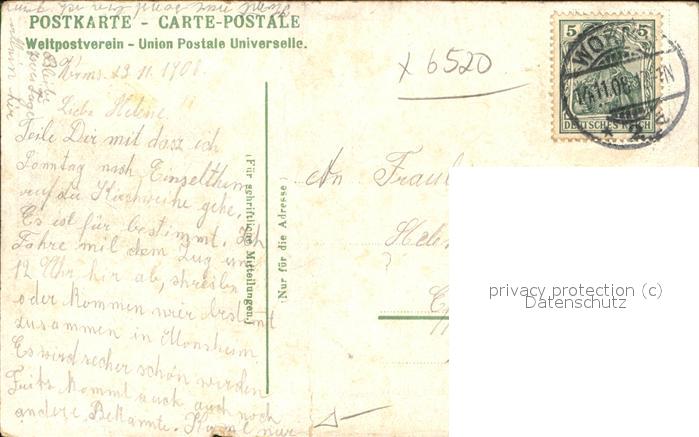 POSTKARTE - CARTE-POSTALE
Weltpostverein - Union Postale Universelle.
Worms 13.11.1908.
Liebe Helene.
Teile Dir mit dasz ich
Sonntag nach Einselthum
auf die Kirchweihe gehe,
Es ist für bestimmt. Ich
Fahre mit dem Zug um
12 Uhr hir ab, schreibe
oder kommen wier bestimt
zusammen in Monsheim
Es wird secher schön werden
kommt auch auch noch
andere Bekannte. nur
(Für schriftliche Mitteilungen.)
(Nur für die Adresse)
x 6520
5 5
DEUTSCHES REICH
WOR
11.08
An Fraul
Hele
privacy protection (c)
Datenschutz